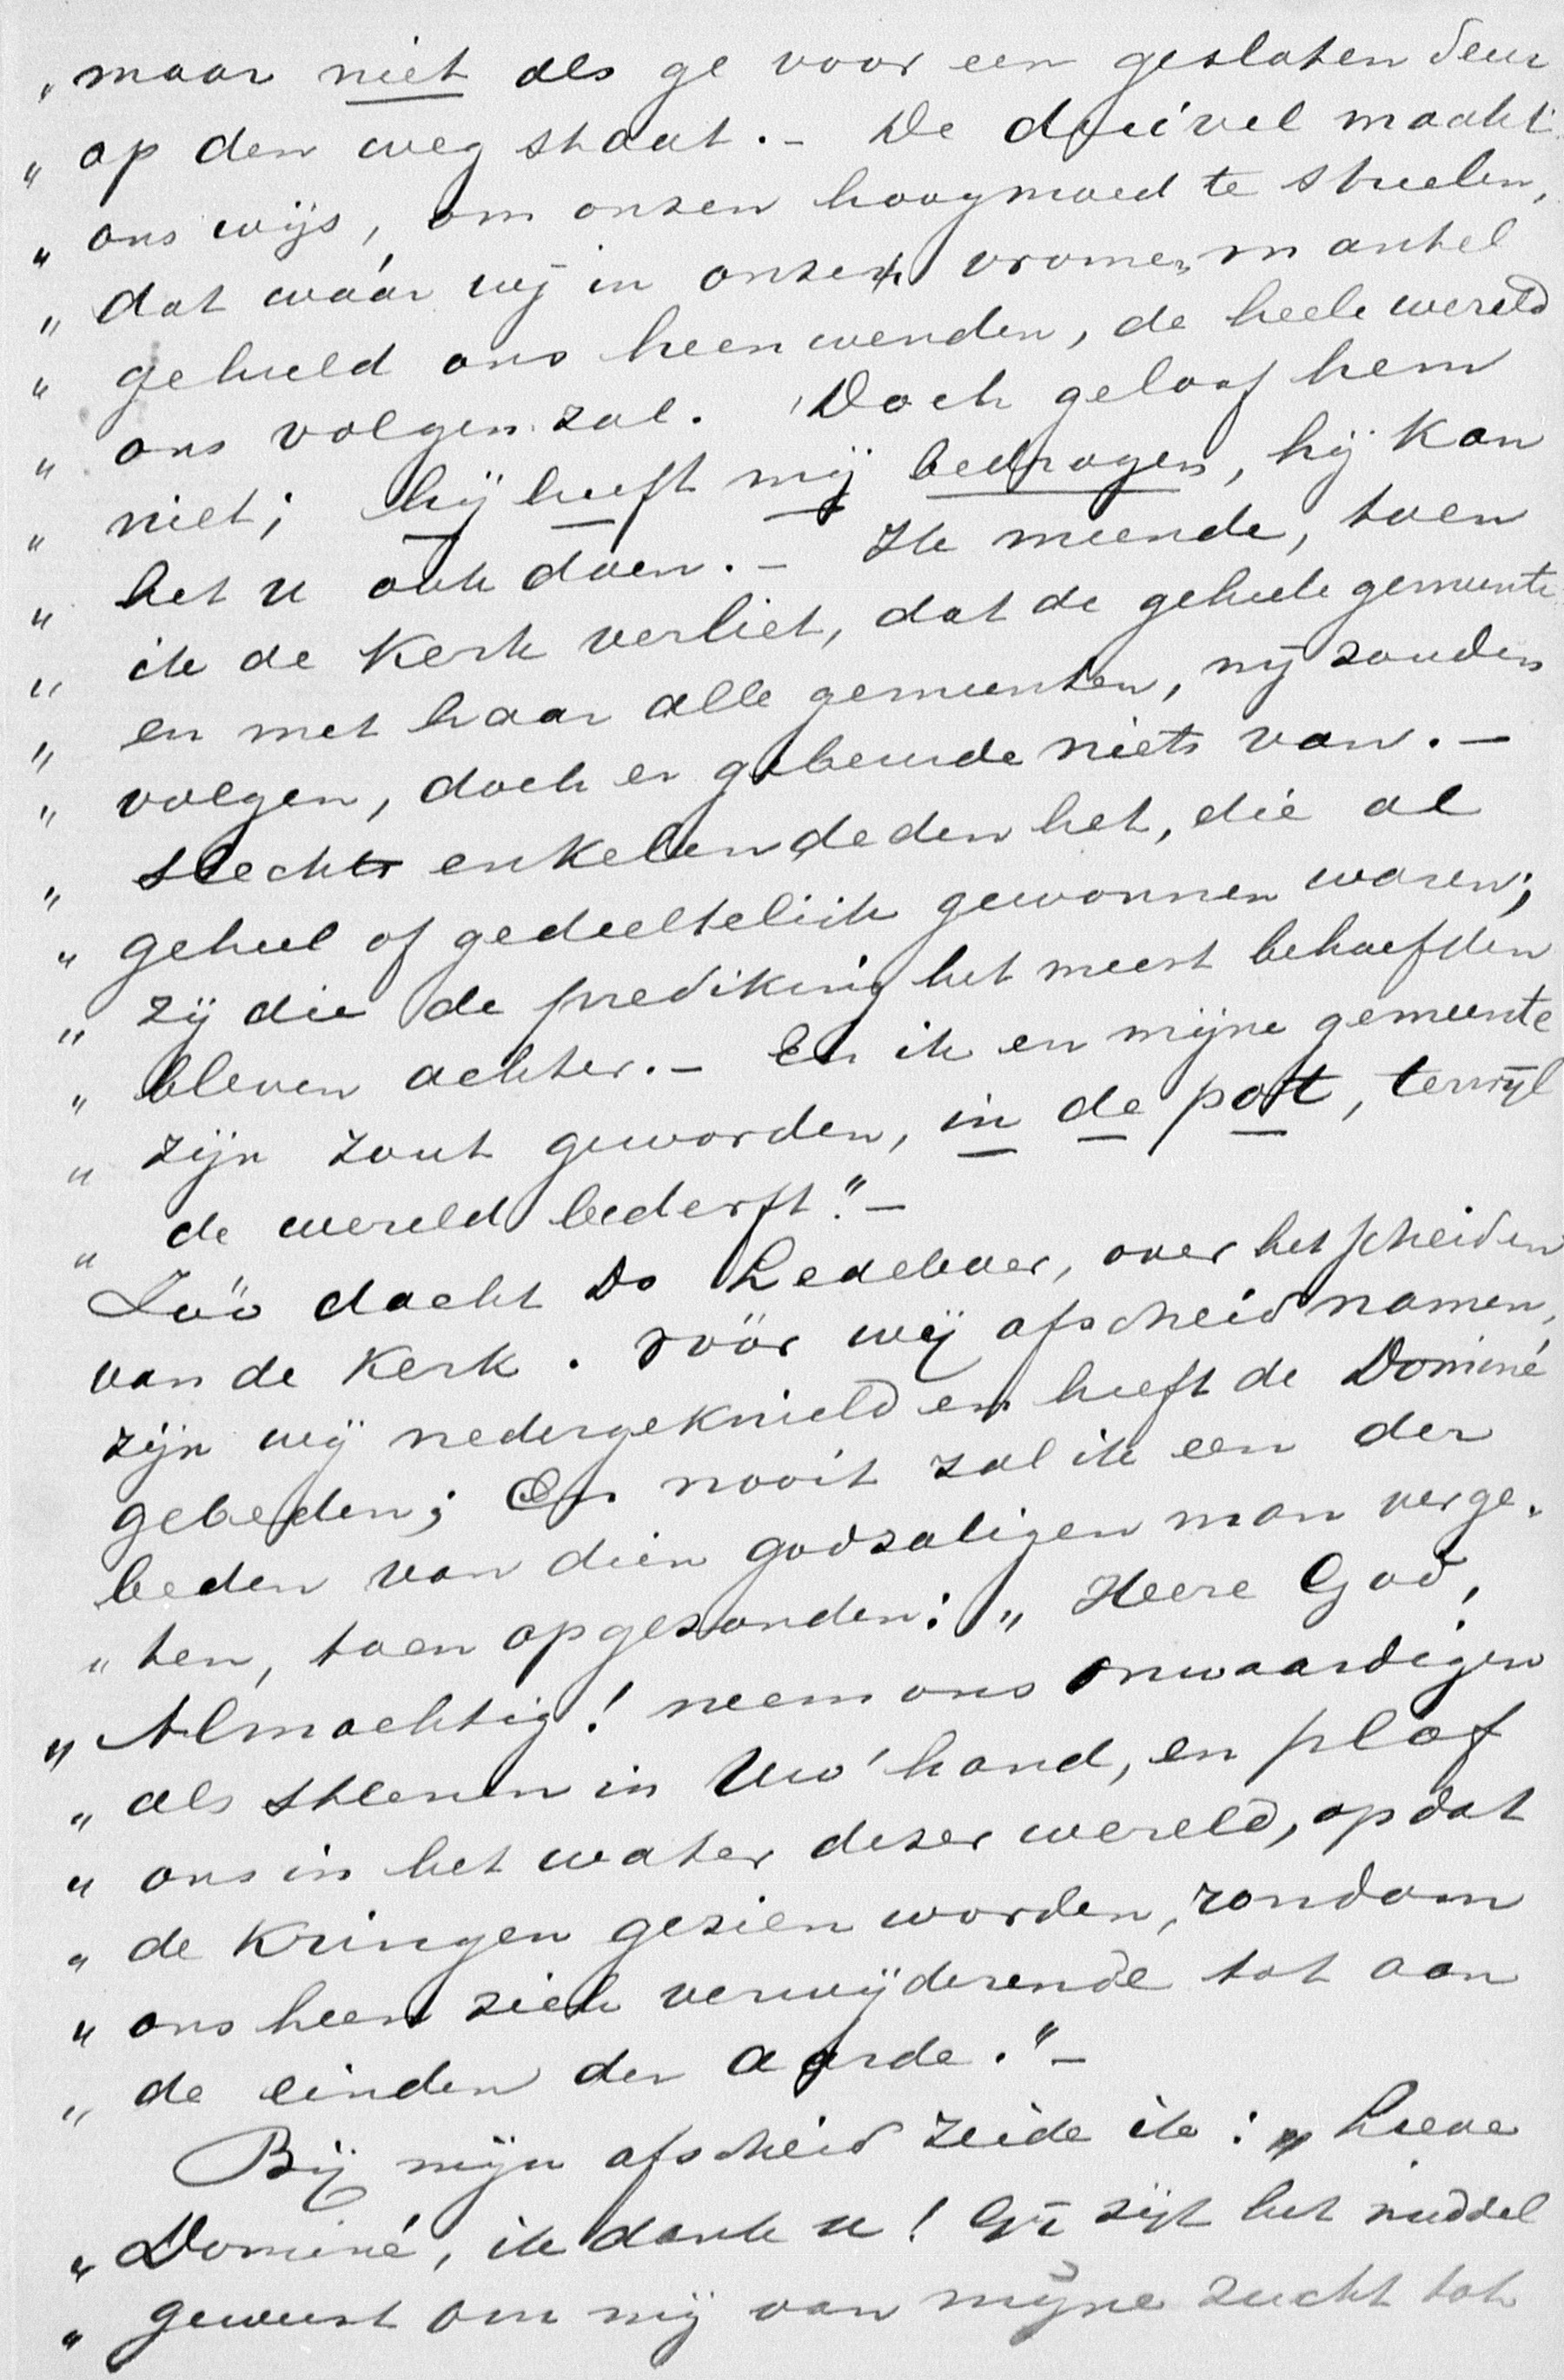 „ maar niet als ge voor een gesloten deur
„ op den weg staat. – De duivel maakt
„ ons wijs, om onzen hoogmoed te streelen,
„ dat wáár wij in onzen vromen mantel
„ gehuld ons heenwenden, de heele wereld
„ ons volgen zal. Doch geloof hem
„ niet; hij heeft mij bedrogen, hij kan
„ het u ook doen. – Ik meende, toen
„ ik de Kerk verliet, dat de geheele gemeente
„ en met haar alle gemeenten, mij zouden
„ volgen, doch er gebeurde niets van. –
„ slechts enkelen deden het, die al
„ geheel of gedeeltelijk gewonnen waren;
„ zij die de prediking het meest behoefden
„ bleven achter. – En ik en mijne gemeente
„ zijn zout geworden, in de pot, terwijl
„ de wereld bederft." –
Zoo dacht Ds Ledeboer, over het scheiden
van de Kerk. vóór wij afscheid namen,
zijn wij nedergeknield en heeft de Dominé
gebeden; En nooit zal ik een der
beden van dien godzaligen man verge-
„ ten, toen opgezonden: „ Heere God,
„ Almachtig! neem ons onwaardigen
„ als steenen in Uw hand, en plof
„ ons in het water dezer wereld, opdat
„ de Kringen gezien worden, rondom
„ ons heen zich verwijderende tot aan
„ de einden der aarde." –
Bij mijn afscheid zeide ik: „ Lieve
„ Dominé, ik dank u! Gij zijt het middel
„ geweest om mij van mijne zucht tot